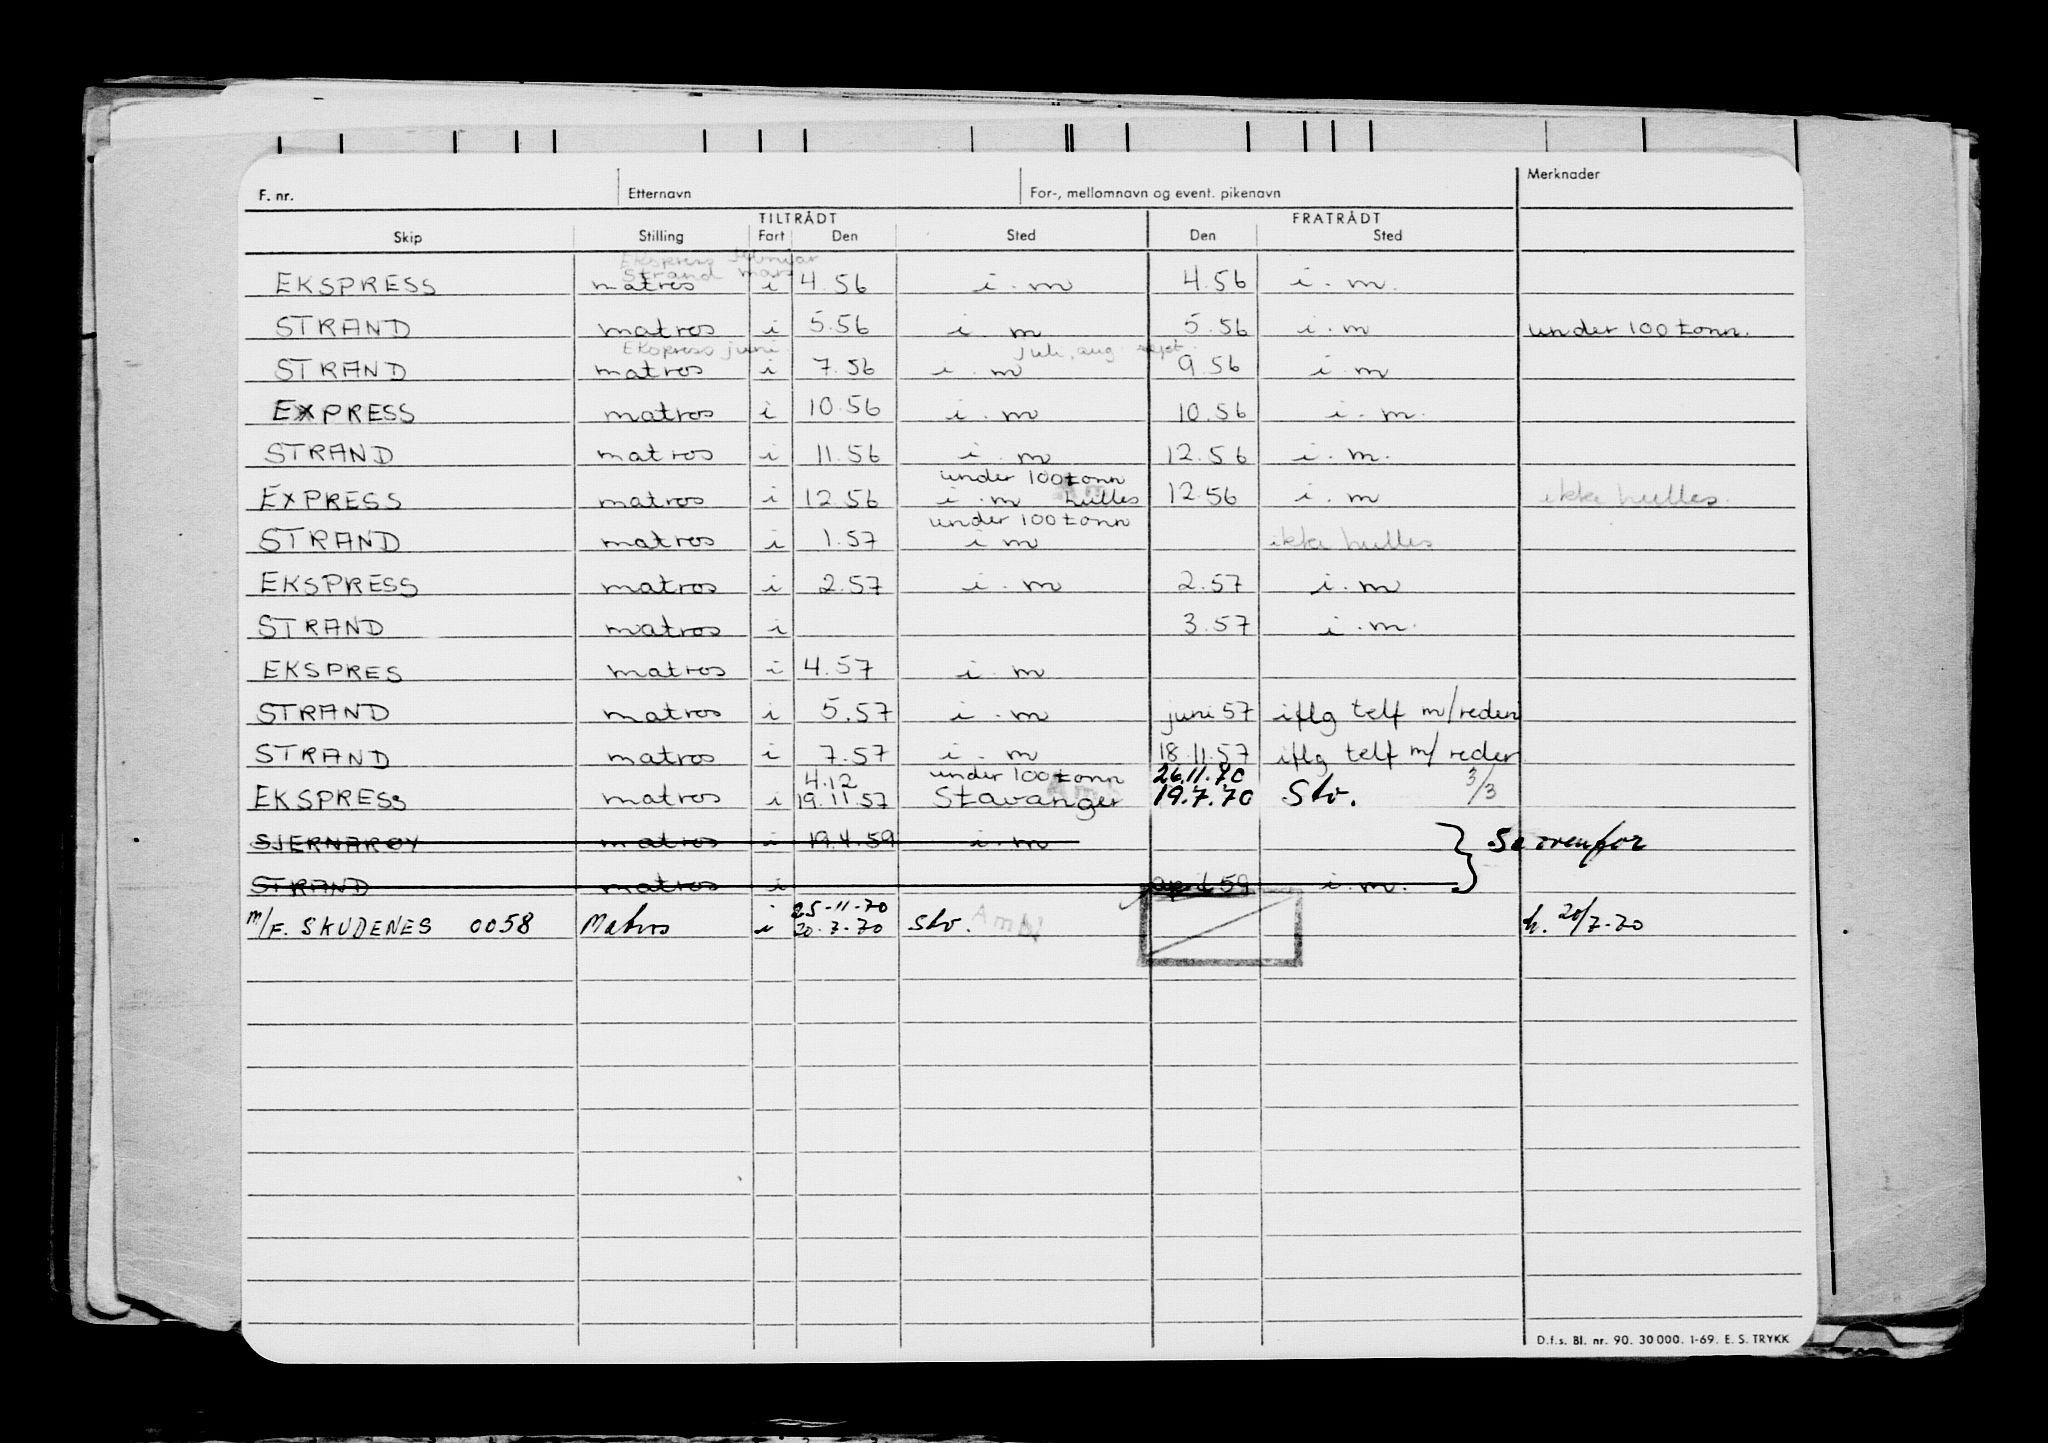 F. nr. Etternavn For-, mellomnavn og event. pikenavn Merknader
TILTRÅDT FRATRÅDT
Skip Stilling Fart Den Sted Den Sted
Ekspress februar
Strand mars
EKSPRESS matros i 4.56 i.m 4.56 i.m.
STRAND matros i 5.56 i.m 5.56 i.m under 100 tonn.
Ekspress juni juli, aug. sept.
STRAND matros i 7.56 i.m 9.56 i.m
EXPRESS matros i 10.56 i.m 10.56 i.m.
STRAND matros i 11.56 i.m 12.56 i.m.
under 100 tonn
EXPRESS matros i 12.56 i.m hulles 12.56 i.m ikke hulles.
under 100 tonn
STRAND matros i 1.57 i m ikke hulles
EKSPRESS matros i 2.57 i.m 2.57 i.m
STRAND matros i 3.57 i.m.
EKSPRES matros i 4.57 i.m
STRAND matros i 5.57 i.m juni 57 iflg telf m/reden
STRAND matros i 7.57 i.m 18.11.57 iflg telf m/ reder
4.12 under 100 tonn 26.11.70
EKSPRESS matros i 19.11.57 Stavanger 19.7.70 Stv. 3/3
SJERNARØY matros i 19.4.59 i.m Se ovenfor
STRAND matros i april 59 i.m.
25-11-70
M/F. SKUDENES 0058 Matros i 20.7-70 Stv. h. 20/7-70
D.f.s. Bl. nr. 90. 30 000. 1-69. E. S. TRYKK